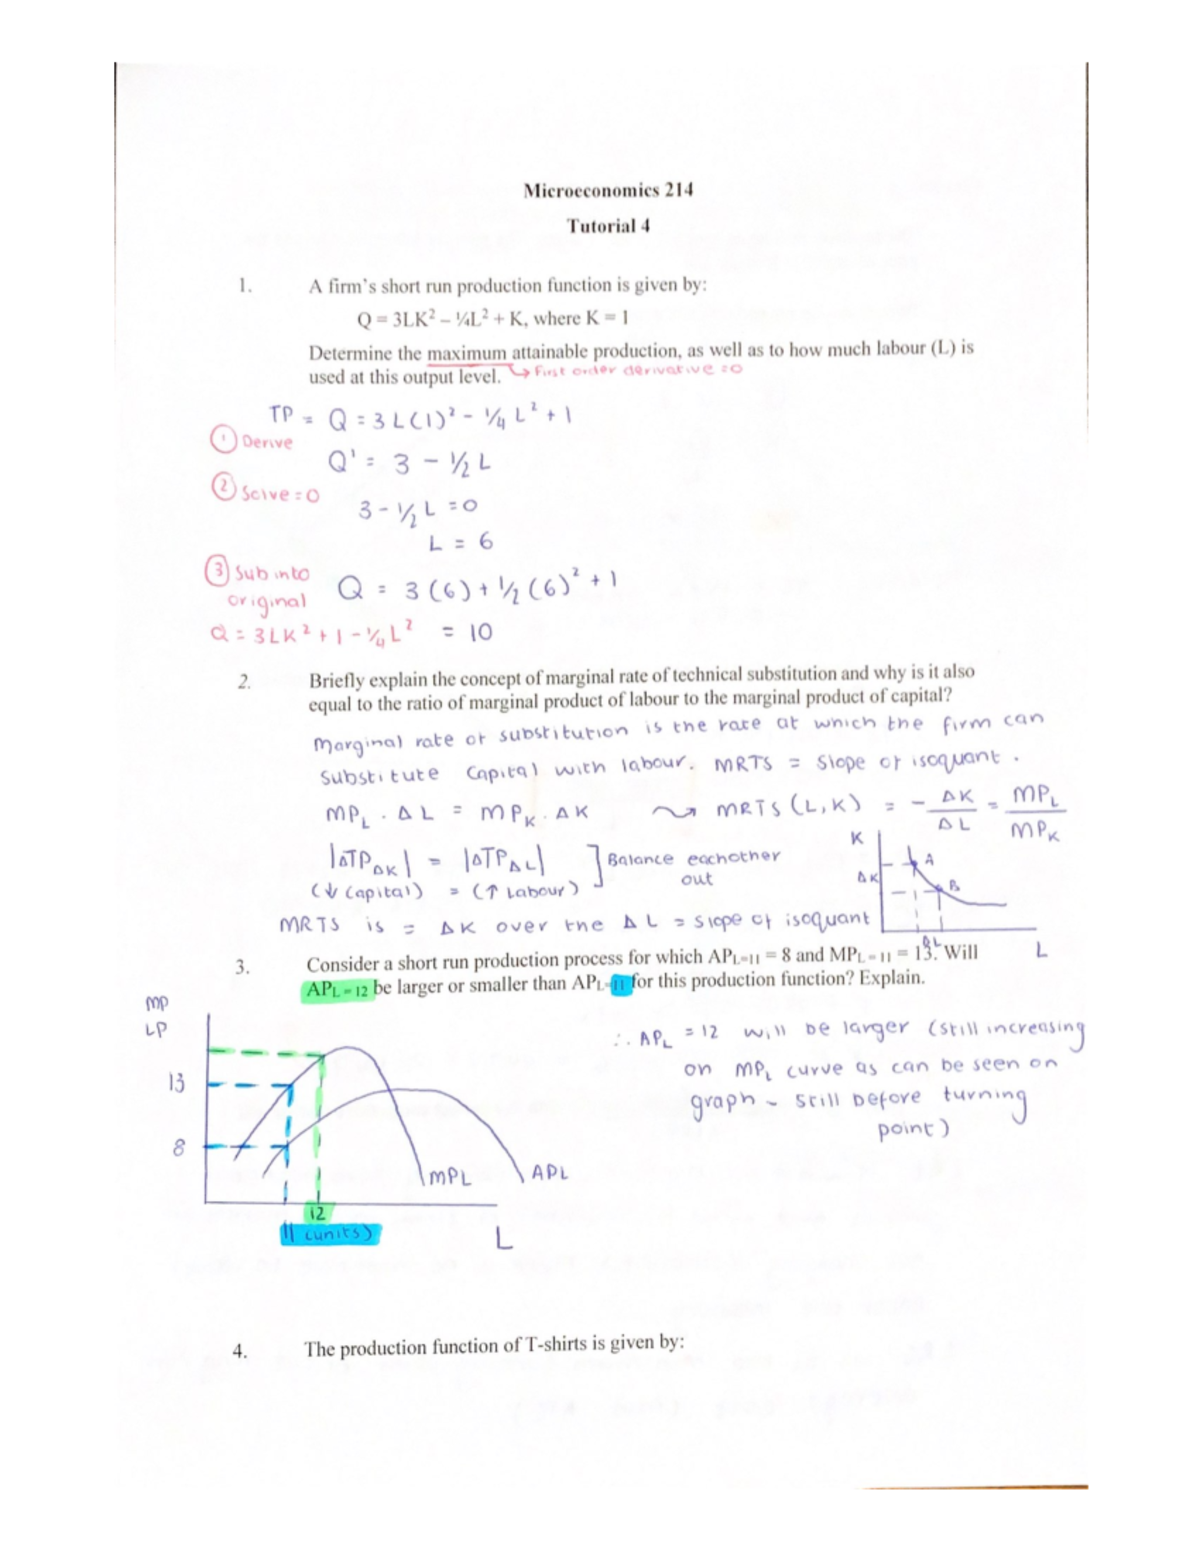 Microeconomics 214
Tutorial 4
1. A firm's short run production function is given by:
Q = 3LK² – ¼L² + K, where K = 1
Determine the maximum attainable production, as well as to how much labour (L) is
used at this output level. ↳ First order derivative = 0
TP = Q = 3L(1)² - ¼L² + 1
① Derive
Q' = 3 - ½L
② Solve = 0
3 - ½L = 0
L = 6
③ Sub into
original
Q = 3(6) + ½(6)² + 1
Q = 3LK² + 1 - ¼L² = 10
2. Briefly explain the concept of marginal rate of technical substitution and why is it also
equal to the ratio of marginal product of labour to the marginal product of capital?
Marginal rate of substitution is the rate at which the firm can
substitute capital with labour. MRTS = slope of isoquant.
MPL . ΔL = MPK . ΔK ⇝ MRTS (L,K) = - ΔK/ΔL = MPL/MPK
|ΔTPΔK| = |ΔTPΔL| ] Balance eachother
out
(↓ capital) = (↑ Labour)
K
A
ΔK
B
ΔL
L
MRTS is = ΔK over the ΔL = slope of isoquant
3. Consider a short run production process for which APL=11 = 8 and MPL = 11 = 13. Will
APL = 12 be larger or smaller than APL=11 for this production function? Explain.
MP
LP
13
8
MPL
APL
12
11 (units)
L
∴ APL = 12 will be larger (still increasing
on MPL curve as can be seen on
graph - still before turning
point)
4. The production function of T-shirts is given by: